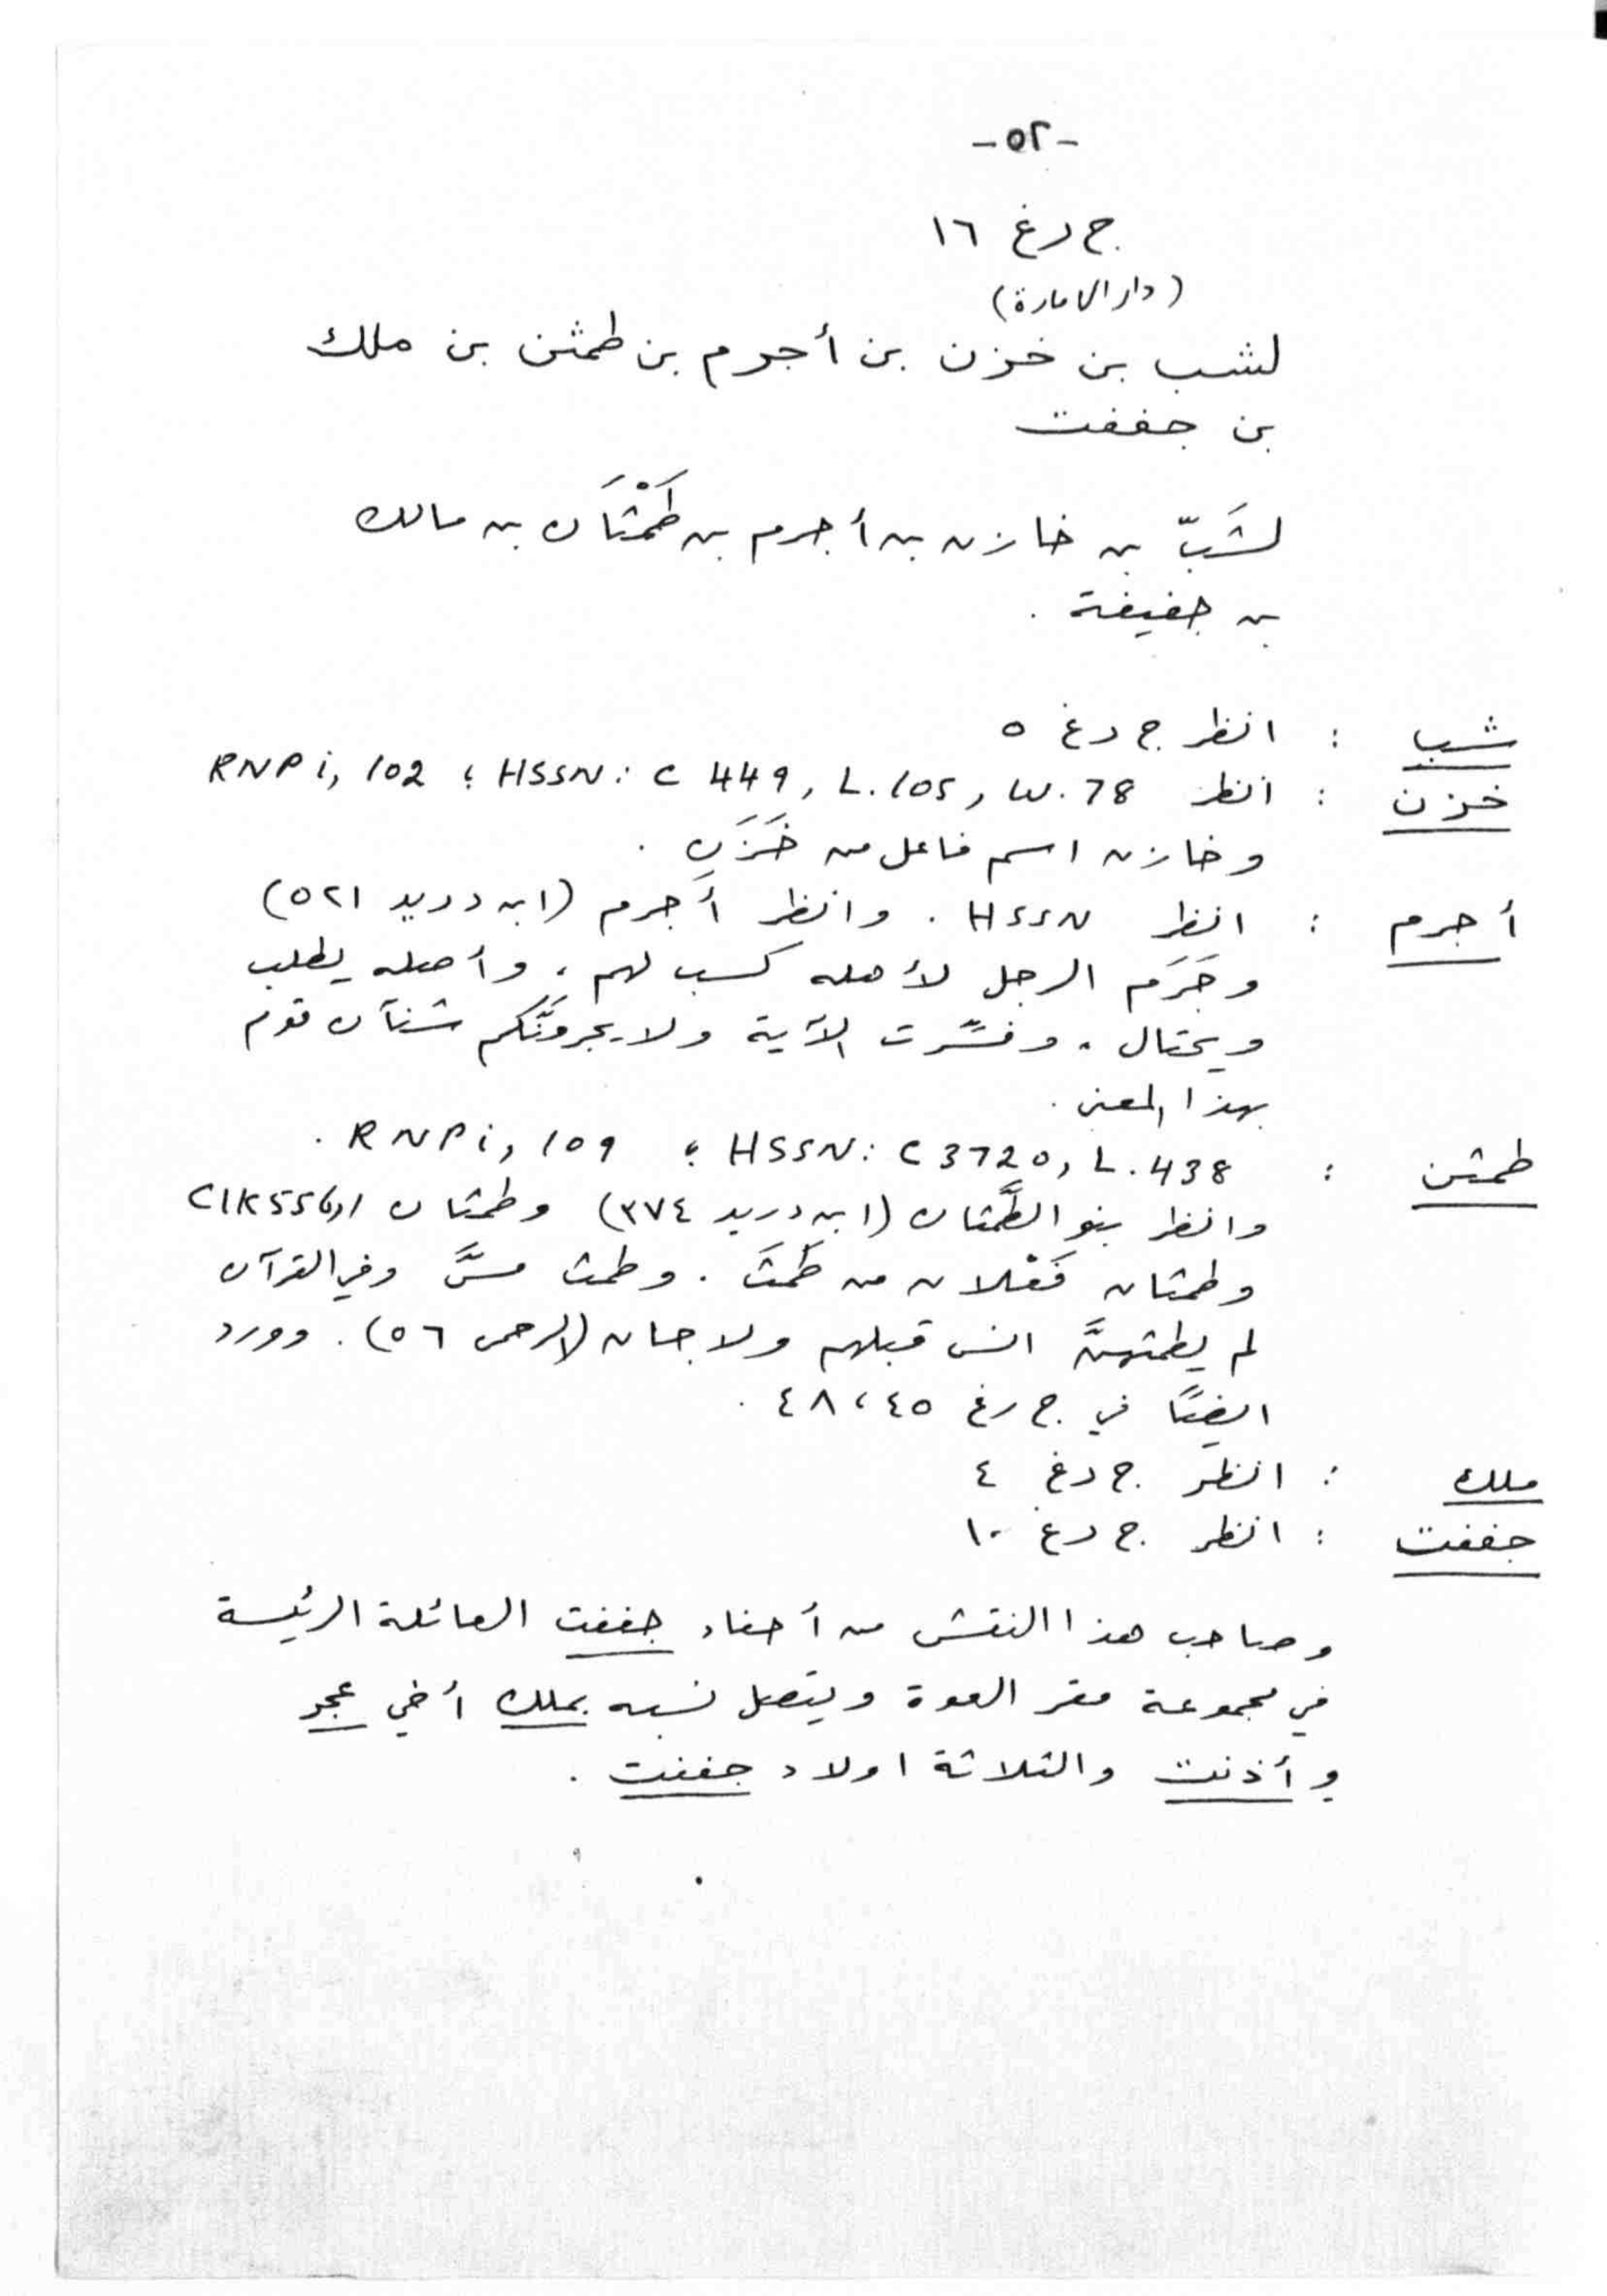 -٥٢-
ج دغ ١٦
(دار الامارة)
لشب بن خزن بن أجرم بن طمثن بن ملك
بن جففت
لشَبّ بن خازن بن أجرم بن طَمْثَان بن مالك
بن جفيفة .
شب : انظر ج دغ ٥
خزن : انظر RNP i, 102 ؛ HSSN: C 449, L. 105, W. 78
وخازن اسم فاعل من خَزَن .
أجرم : انظر HSSN . وانظر أجرم (ابن دريد ٥٢١)
وجَرَم الرجل لأهله كسب لهم ، وأصله يطلب
ويحتال . وفسَّرت الآية ولا يجرمَنَّكم شنآن قوم
بهذا المعنى .
طمثن : RNP i, 109 ؛ HSSN: C 3720, L. 438 .
وانظر بنو الطَّمثان (ابن دريد ٣٧٤) وطمثان CIK 556,1
وطمثان فَعْلان من طَمَثَ . وطمث مسَّ وفي القرآن
لم يطمثهنَّ انس قبلهم ولا جان (الرحمن ٥٦) . وورد
ايضًا في ج دغ ٤٥ ، ٤٨ .
ملك : انظر ج دغ ٤
جففت : انظر ج دغ ١٠
وصاحب هذا النقش من أحفاد جففت العائلة الرئيسة
في مجموعة مقر العوة ويتصل نسبه بملك أخي عجر
وأذنت والثلاثة اولاد جففت .